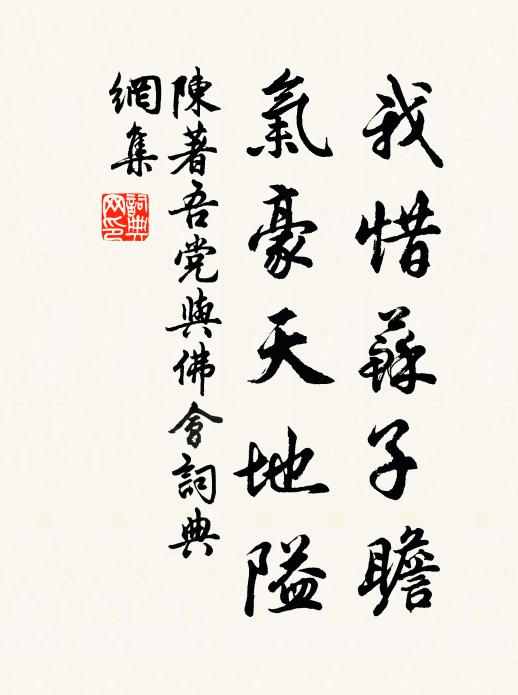 我惜蘇子瞻
氣豪天地隘
陳著吾党與佛會詞典
網集
詞典
网印